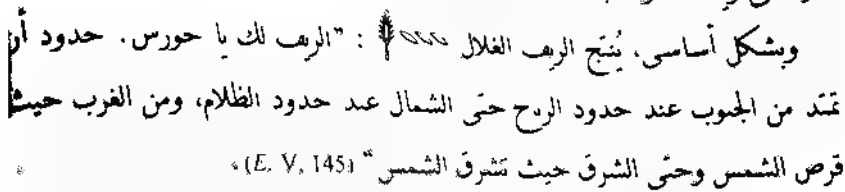 وبشكل أساسى، يُنتج الريف الغلال : "الريف لك يا حورس. حدود أر
تمتد من الجنوب عند حدود الريح حتى الشمال عند حدود الظلام، ومن الغرب حيث
قرص الشمس وحتى الشرق حيث تشرق الشمس" (E. V, 145)